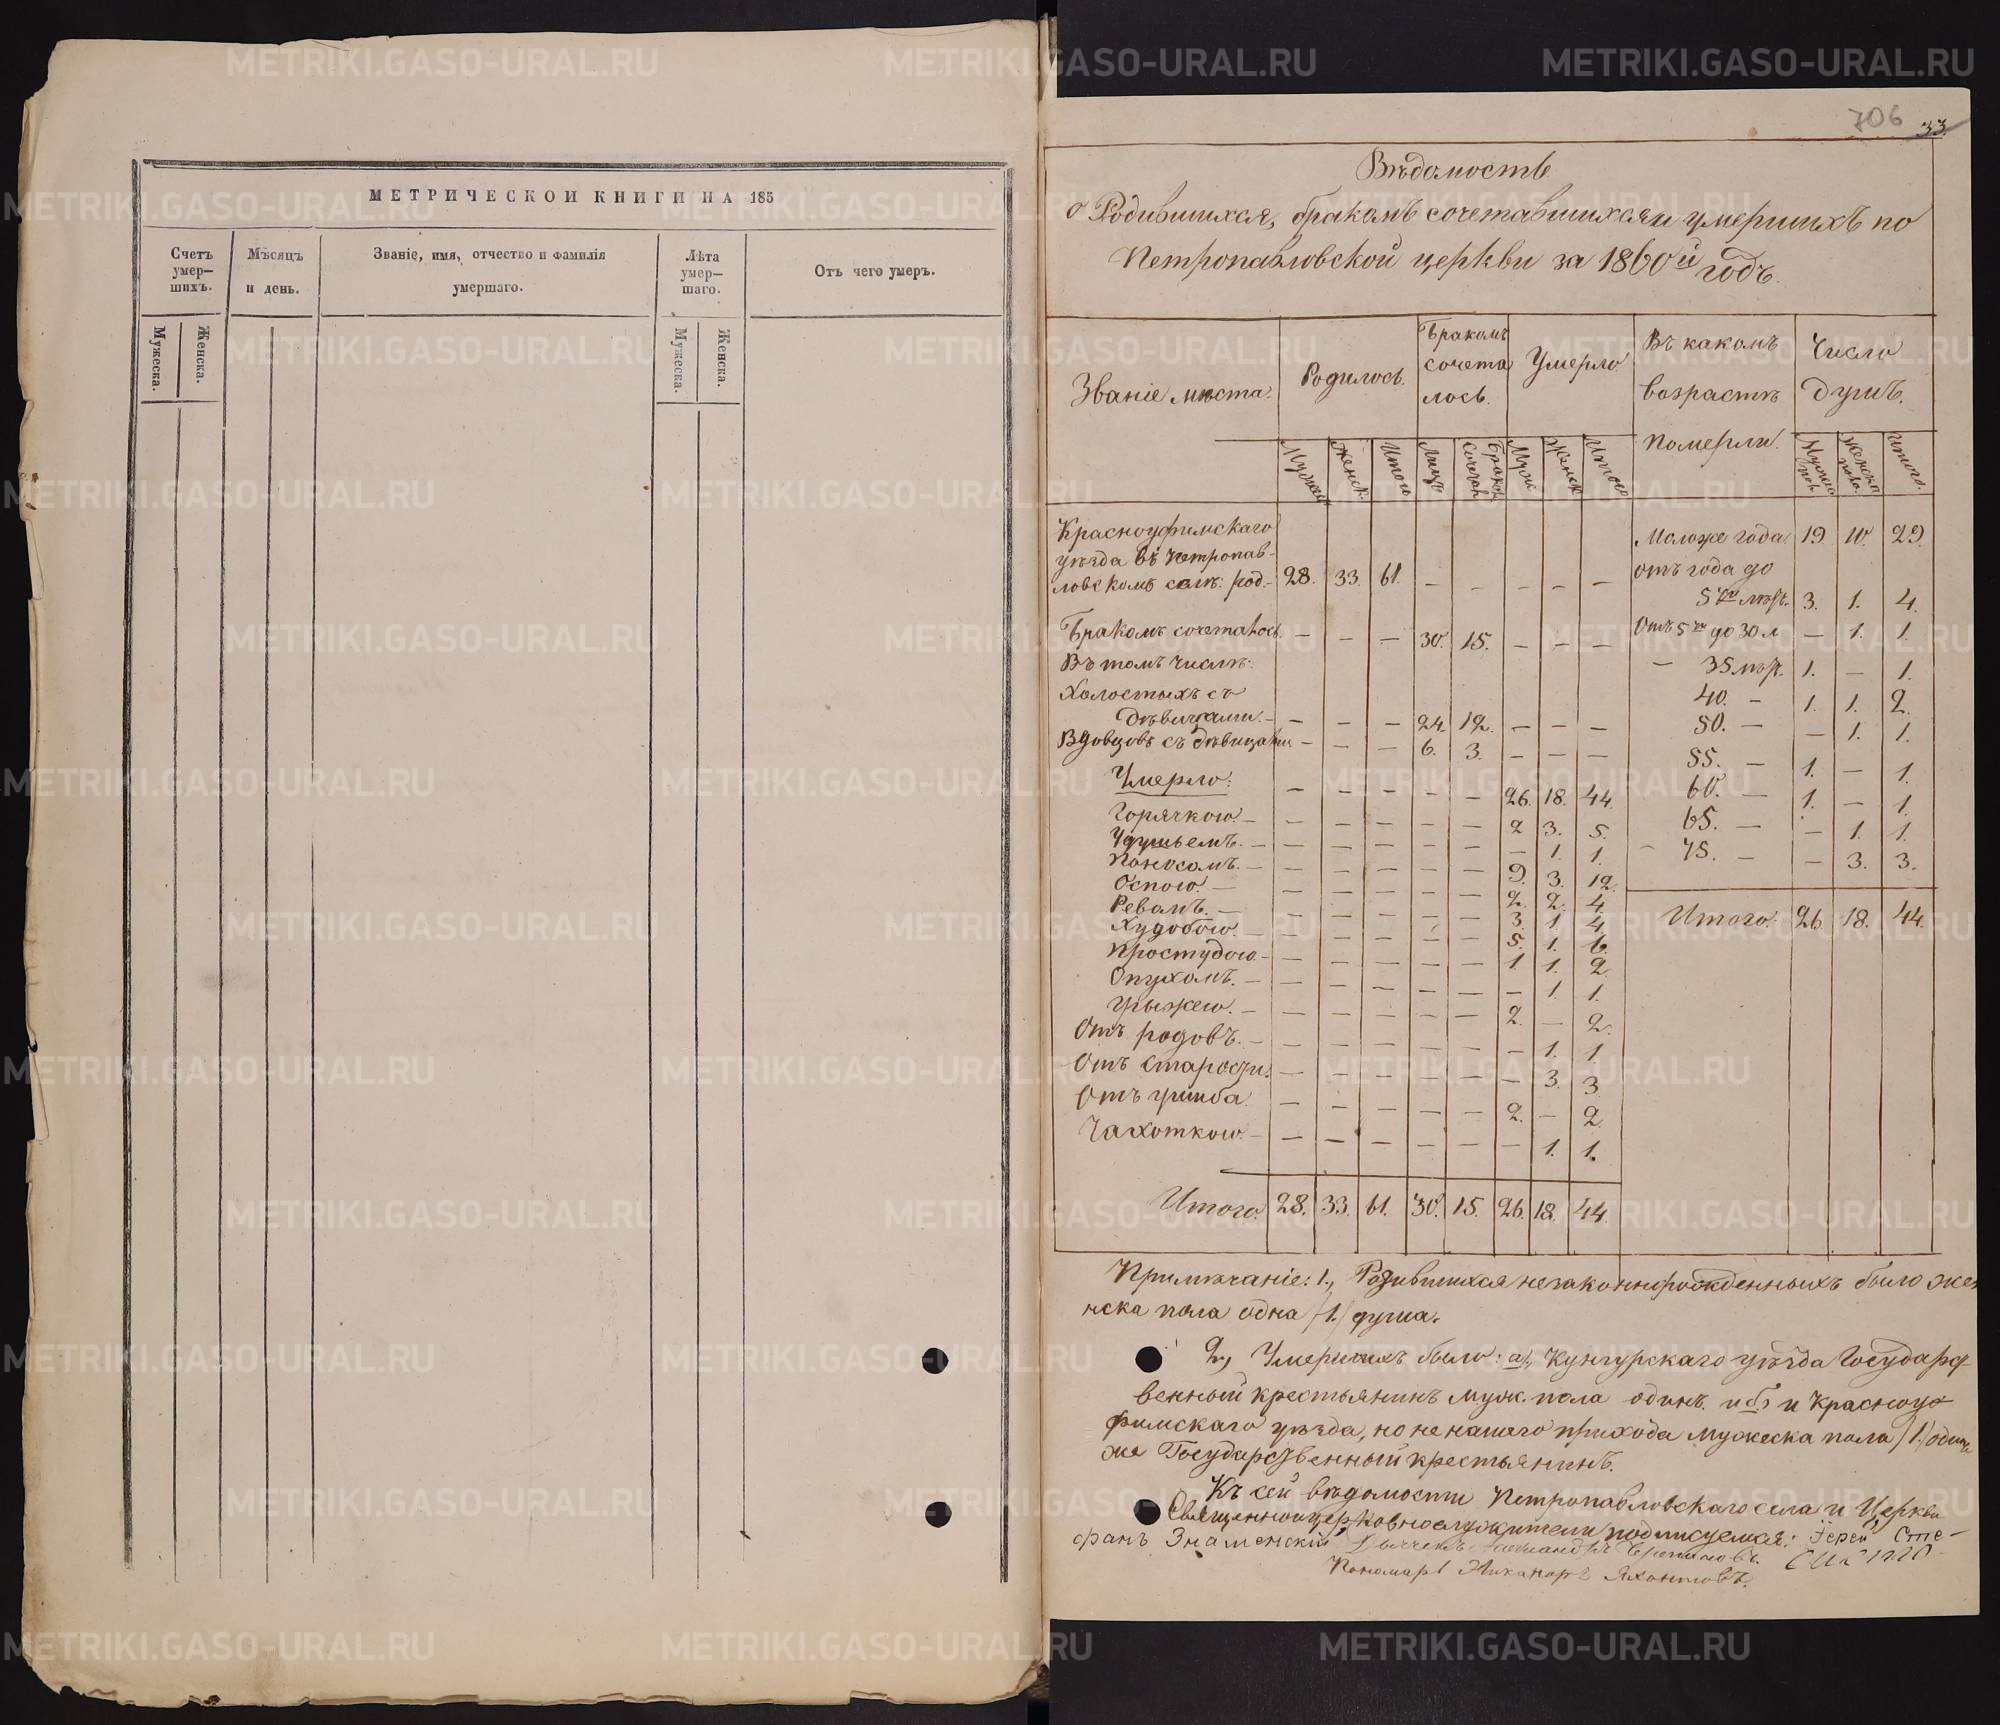 МЕТРИЧЕСКОЙ КНИГИ НА 185
Счетъ умер— шихъ.
Мѣсяцъ и день.
Званіе, имя, отчество и фамилія умершаго.
Лѣта умер— шаго.
Отъ чего умеръ.
Мужеска. Женска.
Мужеска. Женска.
706 33.
Вѣдомость
о Родившихся, бракомъ сочетавшихся и умершихъ по
Петропавловской церкви за 1860й годъ.
Званіе мѣста. Родилось. Бракомъ сочета лось. Умерло Въ какомъ возрастѣ померли. Число душъ.
Мужеск Женск. Итого Лицъ Браков сочетан Муж Женск Итого Мужеска пола Женска пола Итого.
Красноуфимскаго
уѣзда въ Петропав-
ловскомъ селѣ: род.- 28. 33. 61. — — — — —
Бракомъ сочеталось. — — — 30. 15. — — —
Въ томъ числѣ:
Холостыхъ съ
дѣвицами.— — — — 24. 12. — — —
Вдовцовъ съ дѣвицами — — — 6. 3. — — —
Умерло: — — — — — 26. 18. 44.
Горячкою.— — — — — — 2 3. 5.
Удушьемъ.— — — — — — — 1. 1.
Поносомъ.— — — — — — 9. 3. 12.
Оспою.— — — — — — 2. 2. 4.
Ревомъ.— — — — — — 3. 1. 4.
Худобою.— — — — — — 5. 1. 6.
Простудою.— — — — — — 1. 1. 2.
Опухомъ.— — — — — — — 1. 1.
Грыжею.— — — — — — 2. — 2.
Отъ родовъ.— — — — — — — 1. 1
Отъ старости. — — — — — — 3. 3.
Отъ ушиба — — — — — 2. — 2.
Чахоткою.— — — — — — — 1. 1.
Итого. 28. 33. 61. 30. 15. 26. 18. 44.
Моложе года 19. 10. 29.
отъ года до
5ти лѣтъ. 3. 1. 4.
Отъ 5ти до 30 л — 1. 1.
— 35 лѣт. 1. — 1.
40. — 1. 1. 2.
50. — — 1. 1.
55. — 1. — 1.
60. — 1. — 1.
65. — — 1. 1.
— 75. — — 3. 3.
Итого. 26. 18. 44.
Примѣчаніе: 1., Родившихся незаконнорожденныхъ было же
нска пола одна /1./ душа.
2., Умершихъ было: а/, Кунгурскаго уѣзда Государст
венный крестьянинъ муж. пола одинъ. и б.) и Красноуф
фимскаго уѣзда, но не нашего прихода мужеска пола /1./ одинъ
же Государственный крестьянинъ.
Къ сей вѣдомости Петропавловскаго села и Церкви
Священноцерковнослужители подписуемся: Іерей Сте-
фанъ Знаменскій
Пономарь Никаноръ Яхонтовъ.
METRIKI.GASO-URAL.RU